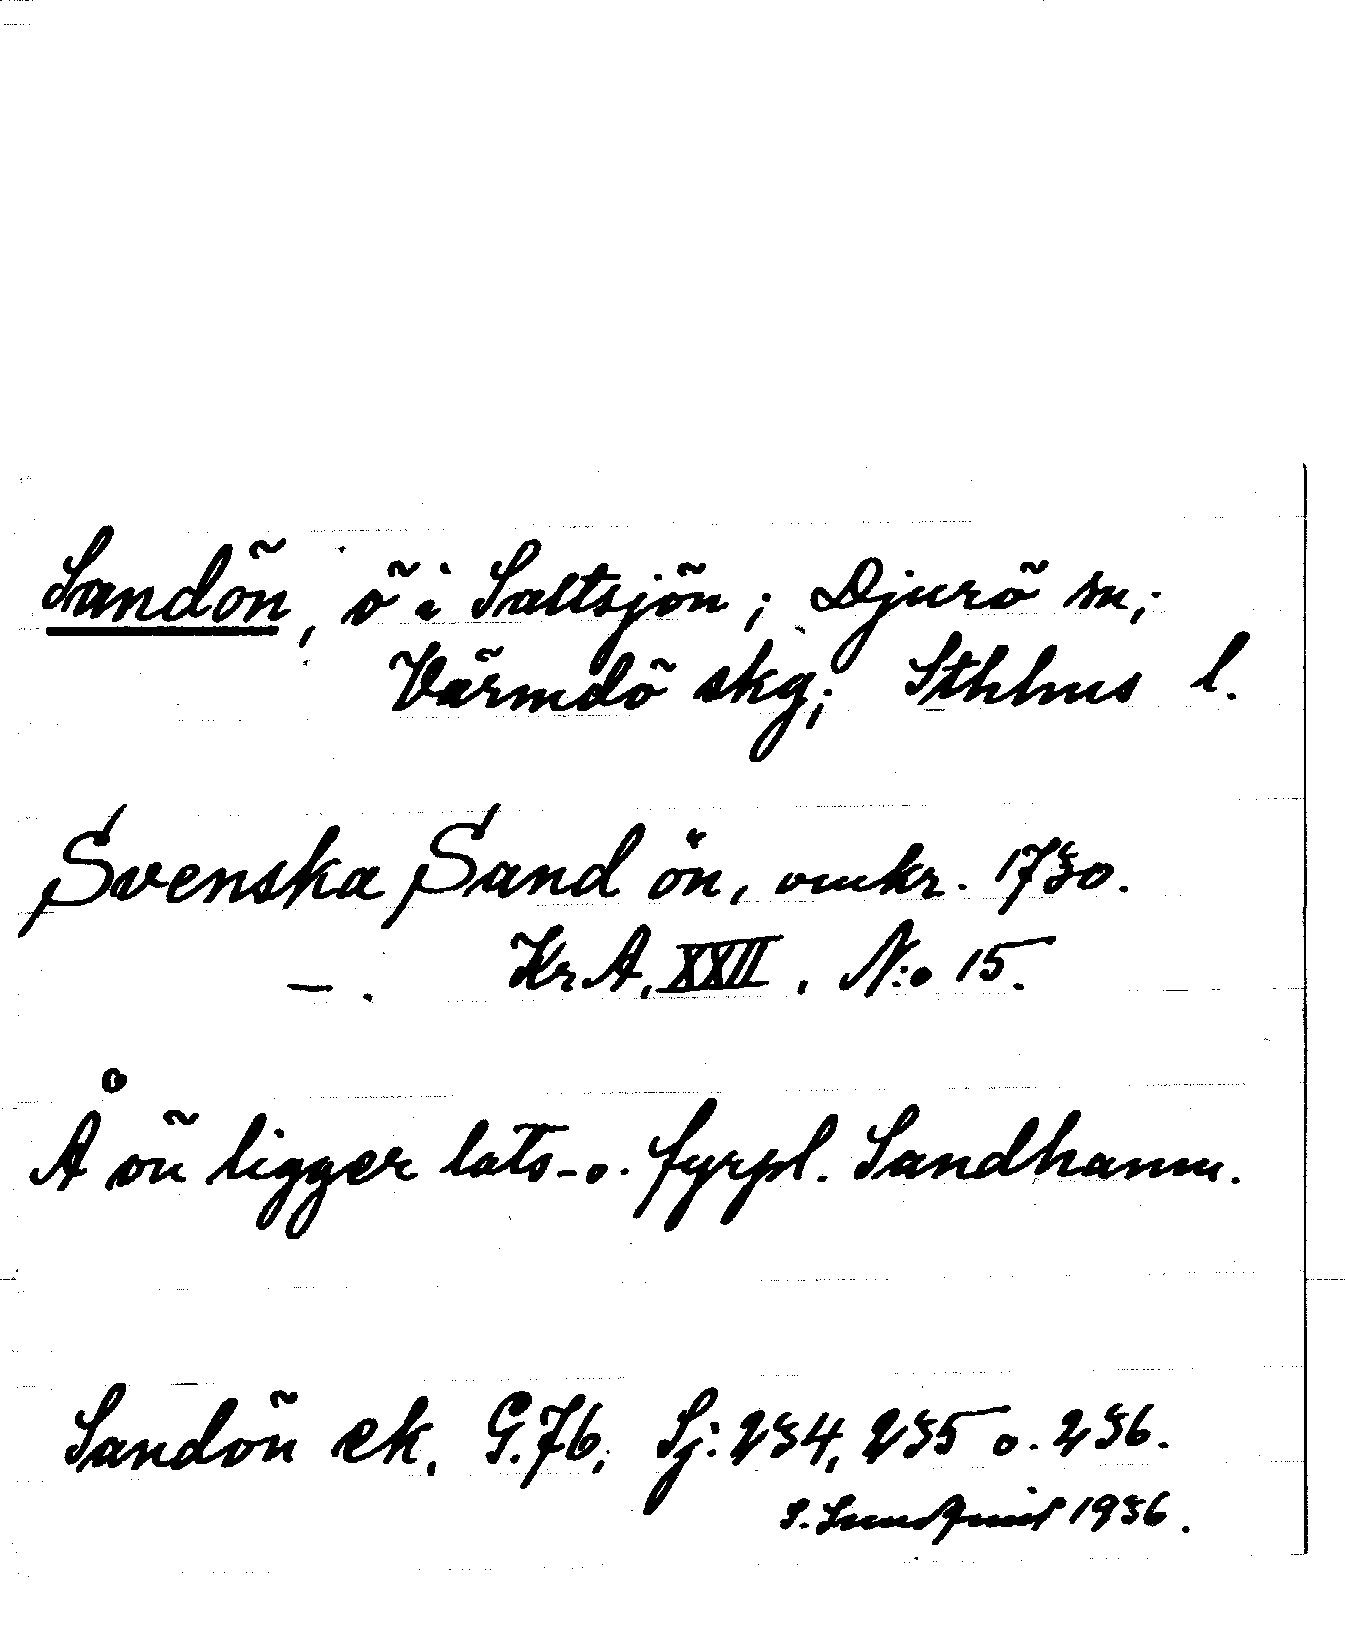 Sandön, ö i Saltsjön; Djurö sn;
Värmdö skg; Sthlms l.
Svenska Sand ön, omkr. 1730.
—. Kr A. XXII. N:o 15.
Å ön ligger lots- o. fyrpl. Sandhamn.
Sandön ek. G.76; Sj: 234, 235 o. 236.
S. Lundquist 1936.